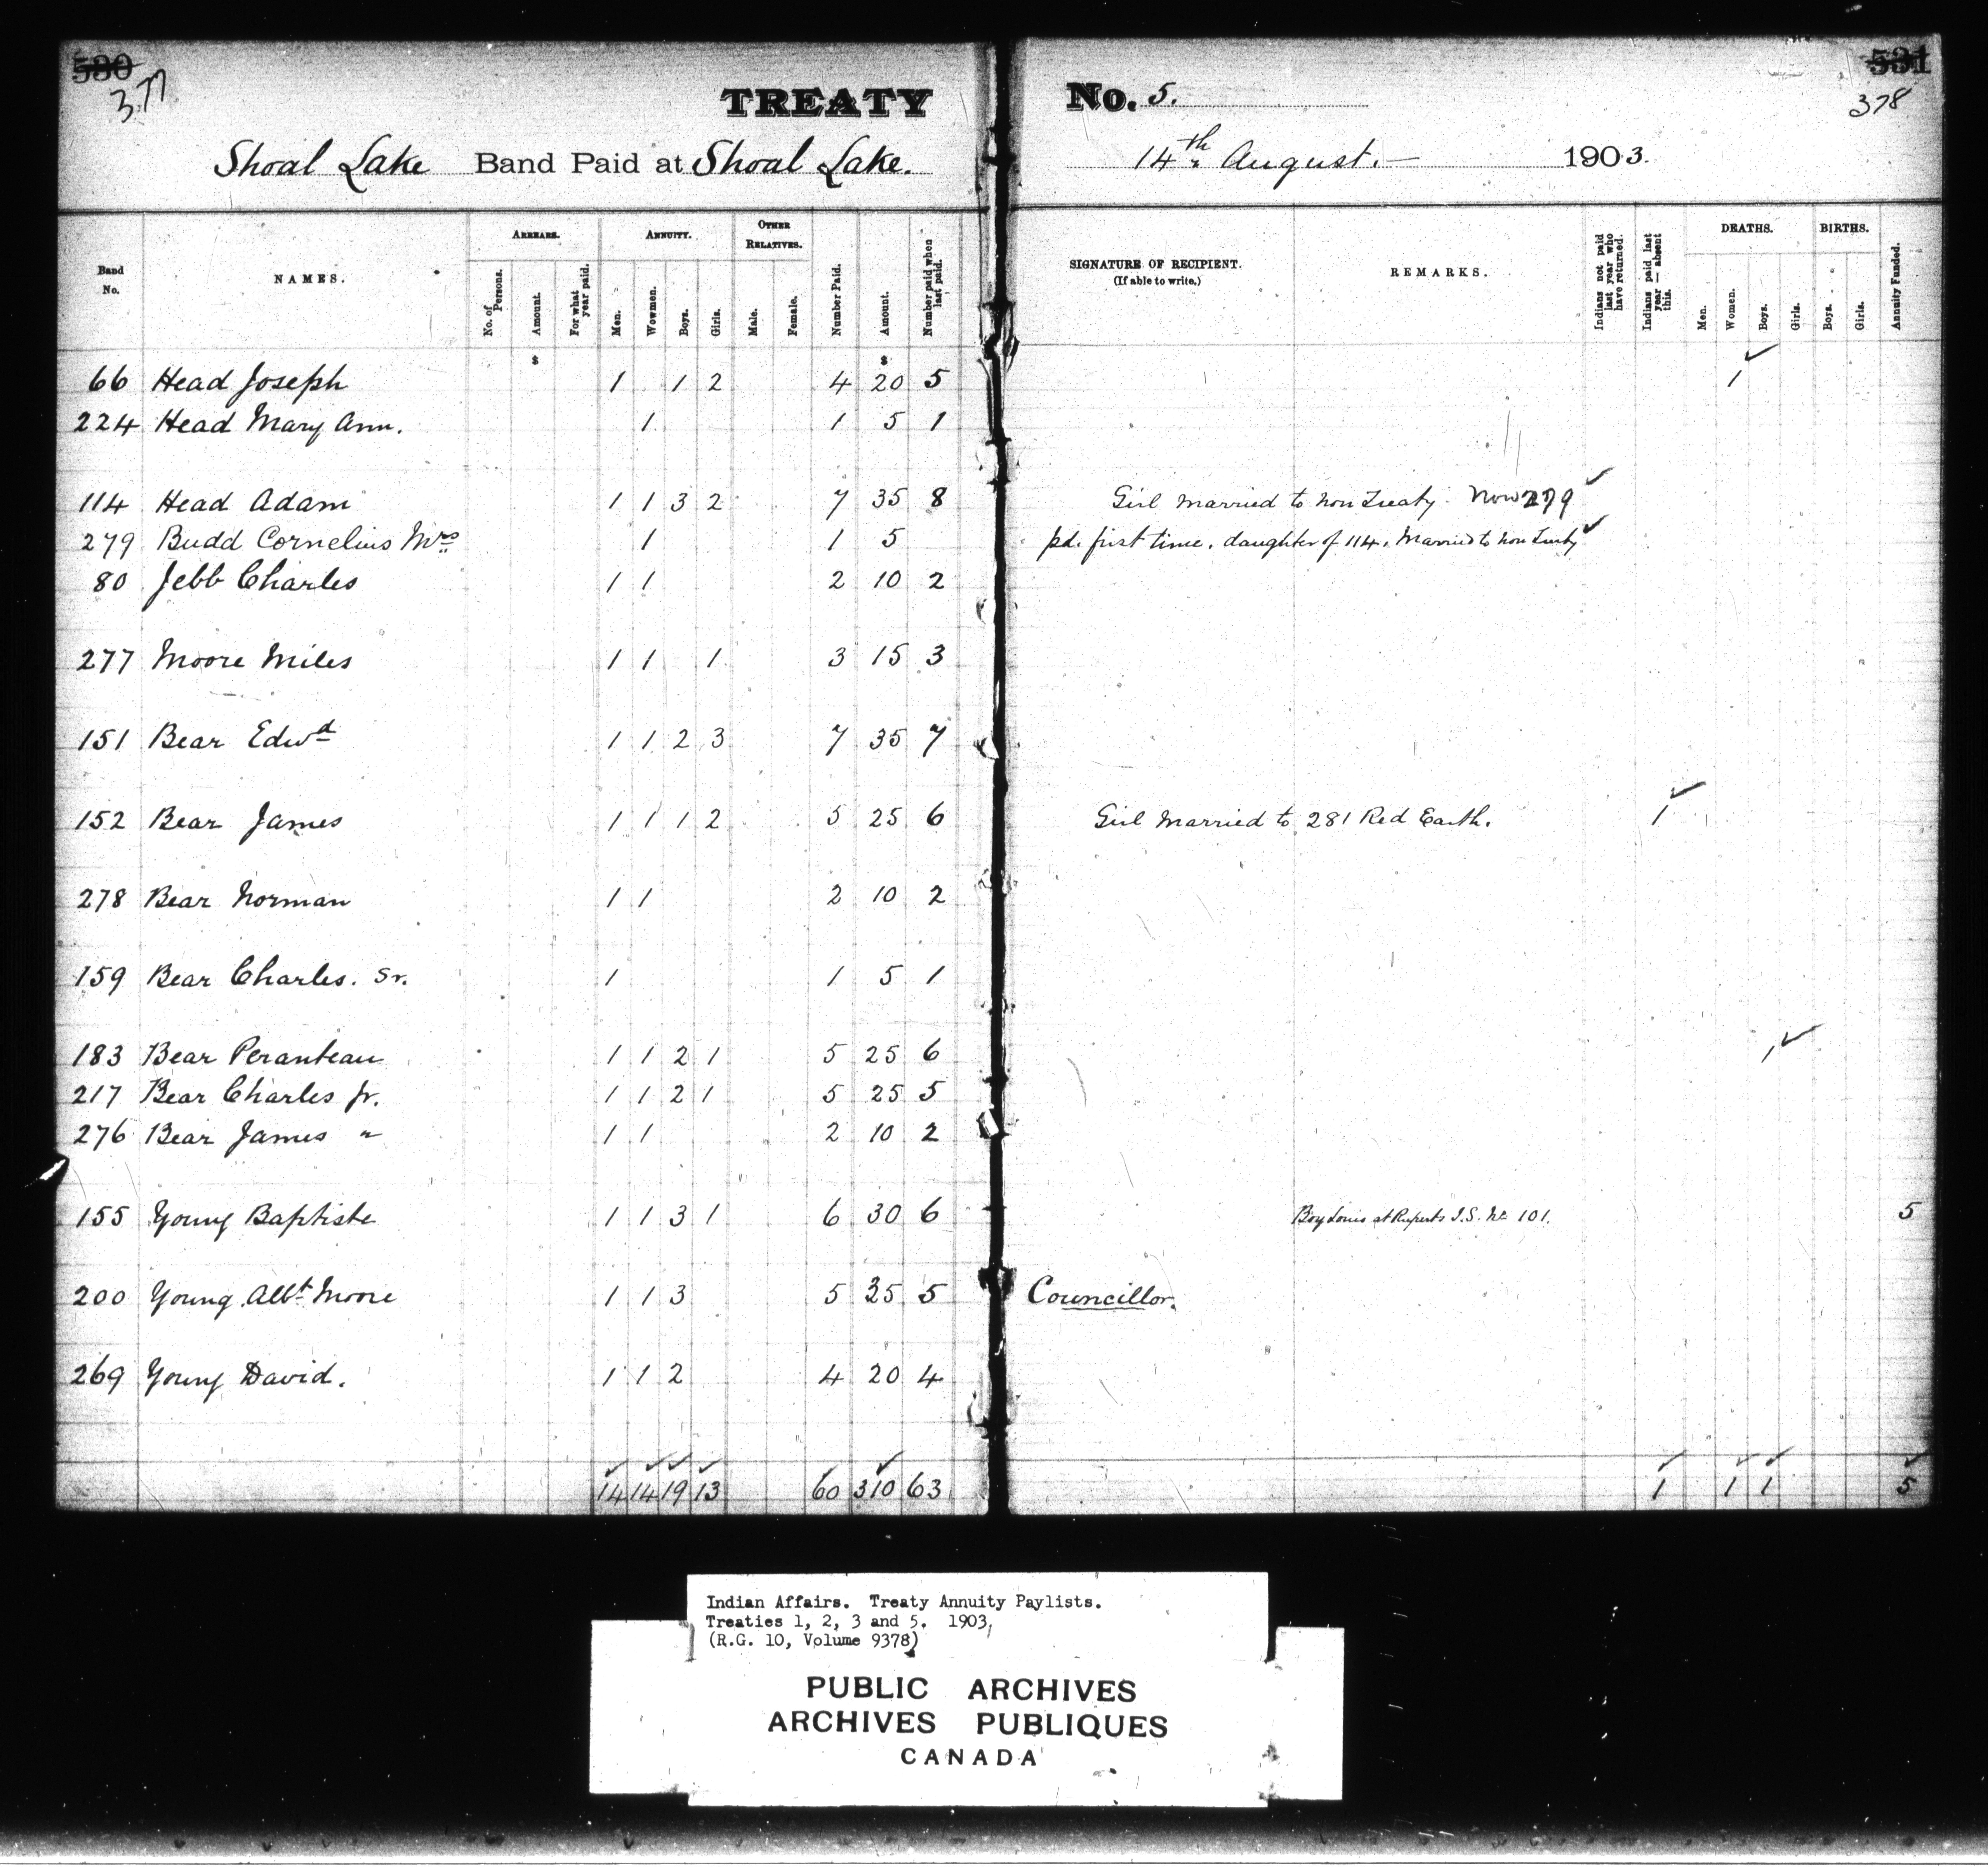 530 531
377 378
TREATY No. 5.
Shoal Lake Band Paid at Shoal Lake. 14th August. — 1903.
Band No. NAMES. ARREARS. No. of Persons. Amount. For what year paid. ANNUITY. Men. Wowmen. Boys. Girls. OTHER RELATIVES. Male. Female. Number Paid. Amount. Number paid when last paid. SIGNATURE OF RECIPIENT. (If able to write.) REMARKS. Indians not paid last year who have returned. Indians paid last year — absent this. DEATHS. Men. Women. Boys. Girls. BIRTHS. Boys. Girls. Annuity Funded.
$ $
66 Head Joseph 1 1 2 4 20 5 1
224 Head Mary Ann. 1 1 5 1
114 Head Adam 1 1 3 2 7 35 8 Girl Married to Non Treaty. Now 279
279 Budd Cornelius Mrs 1 1 5 pd. first time. daughter of 114. Married to Non Treaty
80 Jebb Charles 1 1 2 10 2
277 Moore Miles 1 1 1 3 15 3
151 Bear Edwd 1 1 2 3 7 35 7
152 Bear James 1 1 1 2 5 25 6 Girl Married to 281 Red Earth. 1
278 Bear Norman 1 1 2 10 2
159 Bear Charles. Sr. 1 1 5 1
183 Bear Peranteau 1 1 2 1 5 25 6 1
217 Bear Charles Jr. 1 1 2 1 5 25 5
276 Bear James " 1 1 2 10 2
155 Young Baptiste 1 1 3 1 6 30 6 Boy Louis at Ruperts I.S. No 101. 5
200 Young Albt Moore 1 1 3 5 35 5 Councillor.
269 Young David. 1 1 2 4 20 4
14 14 19 13 60 310 63 1 1 1 5
Indian Affairs. Treaty Annuity Paylists.
Treaties 1, 2, 3 and 5. 1903,
(R.G. 10, Volume 9378)
PUBLIC ARCHIVES
ARCHIVES PUBLIQUES
CANADA